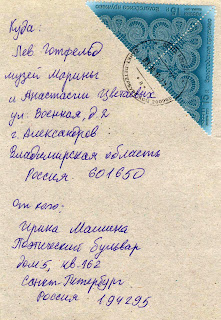 Куда:
Лев Готфельд
музей Марины
и Анастасии Цветаевых
ул. Военная, д. 2
г. Александров
Владимирская область
Россия. 601650
От кого:
Ирина Машина
Поэтический бульвар
дом 5, кв. 162
Санкт-Петербург.
Россия 194295